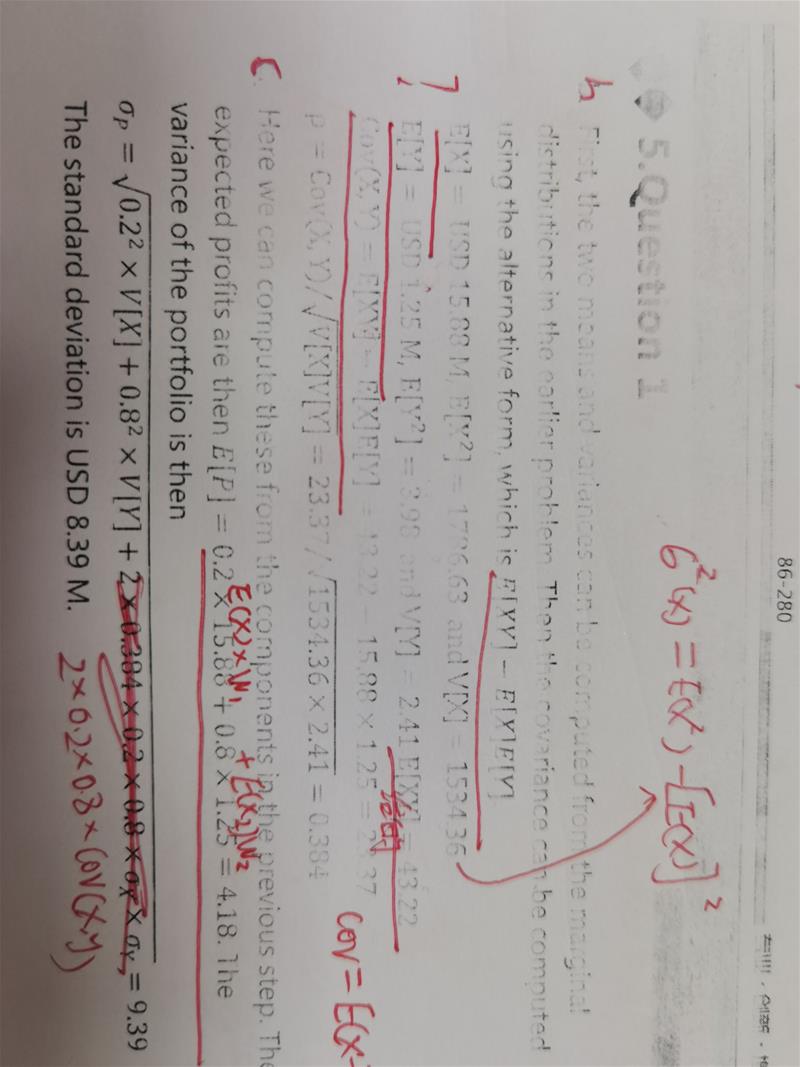 86-280
5.Question 1
6²(x) = E(x²) - [E(x)]²
b First, the two means and variances can be computed from the marginal
distributions in the earlier problem. Then the covariance can be computed
using the alternative form, which is E[XY] − E[X]E[Y]
E[X] = USD 15.88 M, E[X²] = 1786.63 and V[X] = 1534.36
E[Y] = USD 1.25 M, E[Y²] = 3.98 and V[Y] = 2.41 E[XY] = 43.22
Cov(X,Y) = E[XY] − E[X]E[Y] = 43.22 − 15.88 × 1.25 = 23.37
ρ = Cov(X,Y)/√V[X]V[Y] = 23.37/√1534.36 × 2.41 = 0.384
cov = E(X
C. Here we can compute these from the components in the previous step. The
E(X) × W₁ + E(X₂)W₂
expected profits are then E[P] = 0.2 × 15.88 + 0.8 × 1.25 = 4.18. The
variance of the portfolio is then
σP = √0.2² × V[X] + 0.8² × V[Y] + 2 × 0.384 × 0.2 × 0.8 × σX × σY = 9.39
The standard deviation is USD 8.39 M.
2×0.2×0.8×COV(XY)